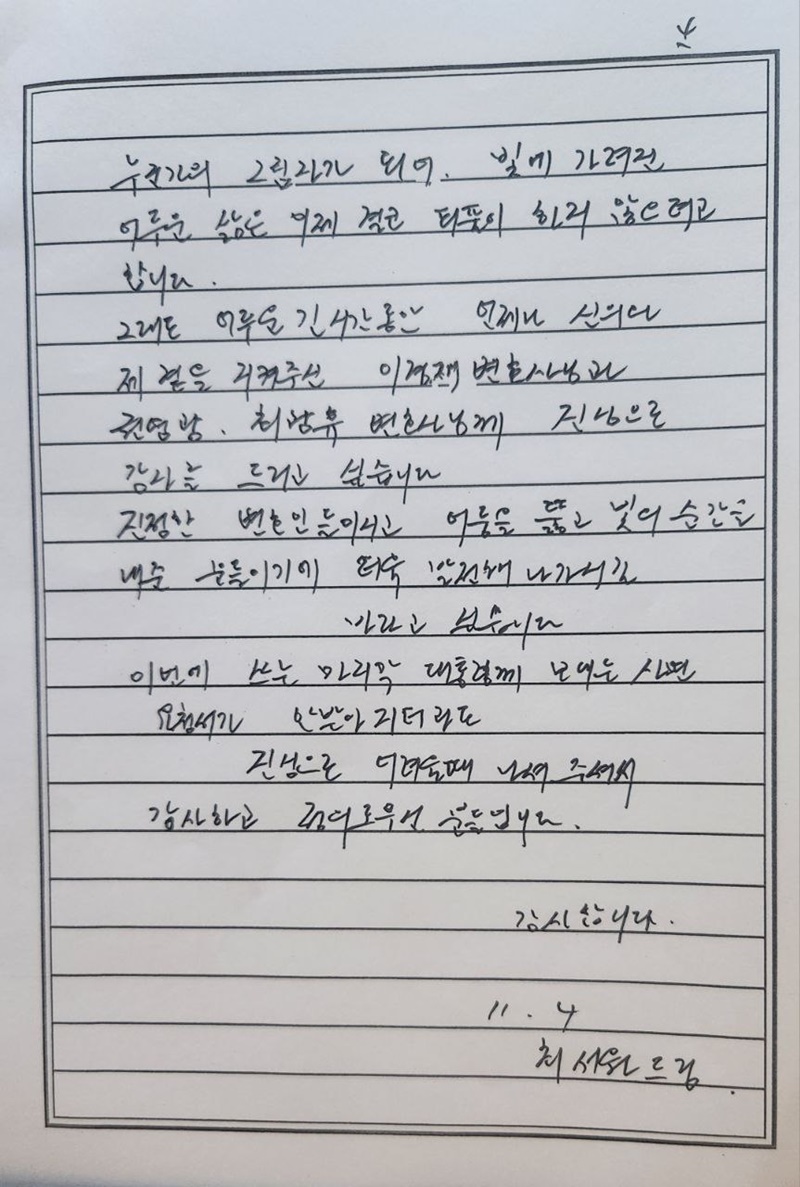 4
누군가의 그림자가 되어. 빛에 가려진
어두운 삶은 이제 결코 되풀이 하지 않으려고
합니다.
그래도 어두운 긴 시간동안 언제나 신의로
제 곁을 지켜주신 이경재 변호사님과
권영광. 최광휴 변호사님께 진심으로
감사를 드리고 싶습니다
진정한 변호인들이시고 어둠을 뚫고 빛의 순간을
내준 분들이기에 더욱 발전해 나가시길
바라고 싶습니다
이번에 쓰는 마지막 대통령께 보내는 사면
요청서가 안받아지더라도
진심으로 어려울때 나서 주셔서
감사하고 정의로우신 분들입니다.
감사합니다.
11. 4
최서원 드림.